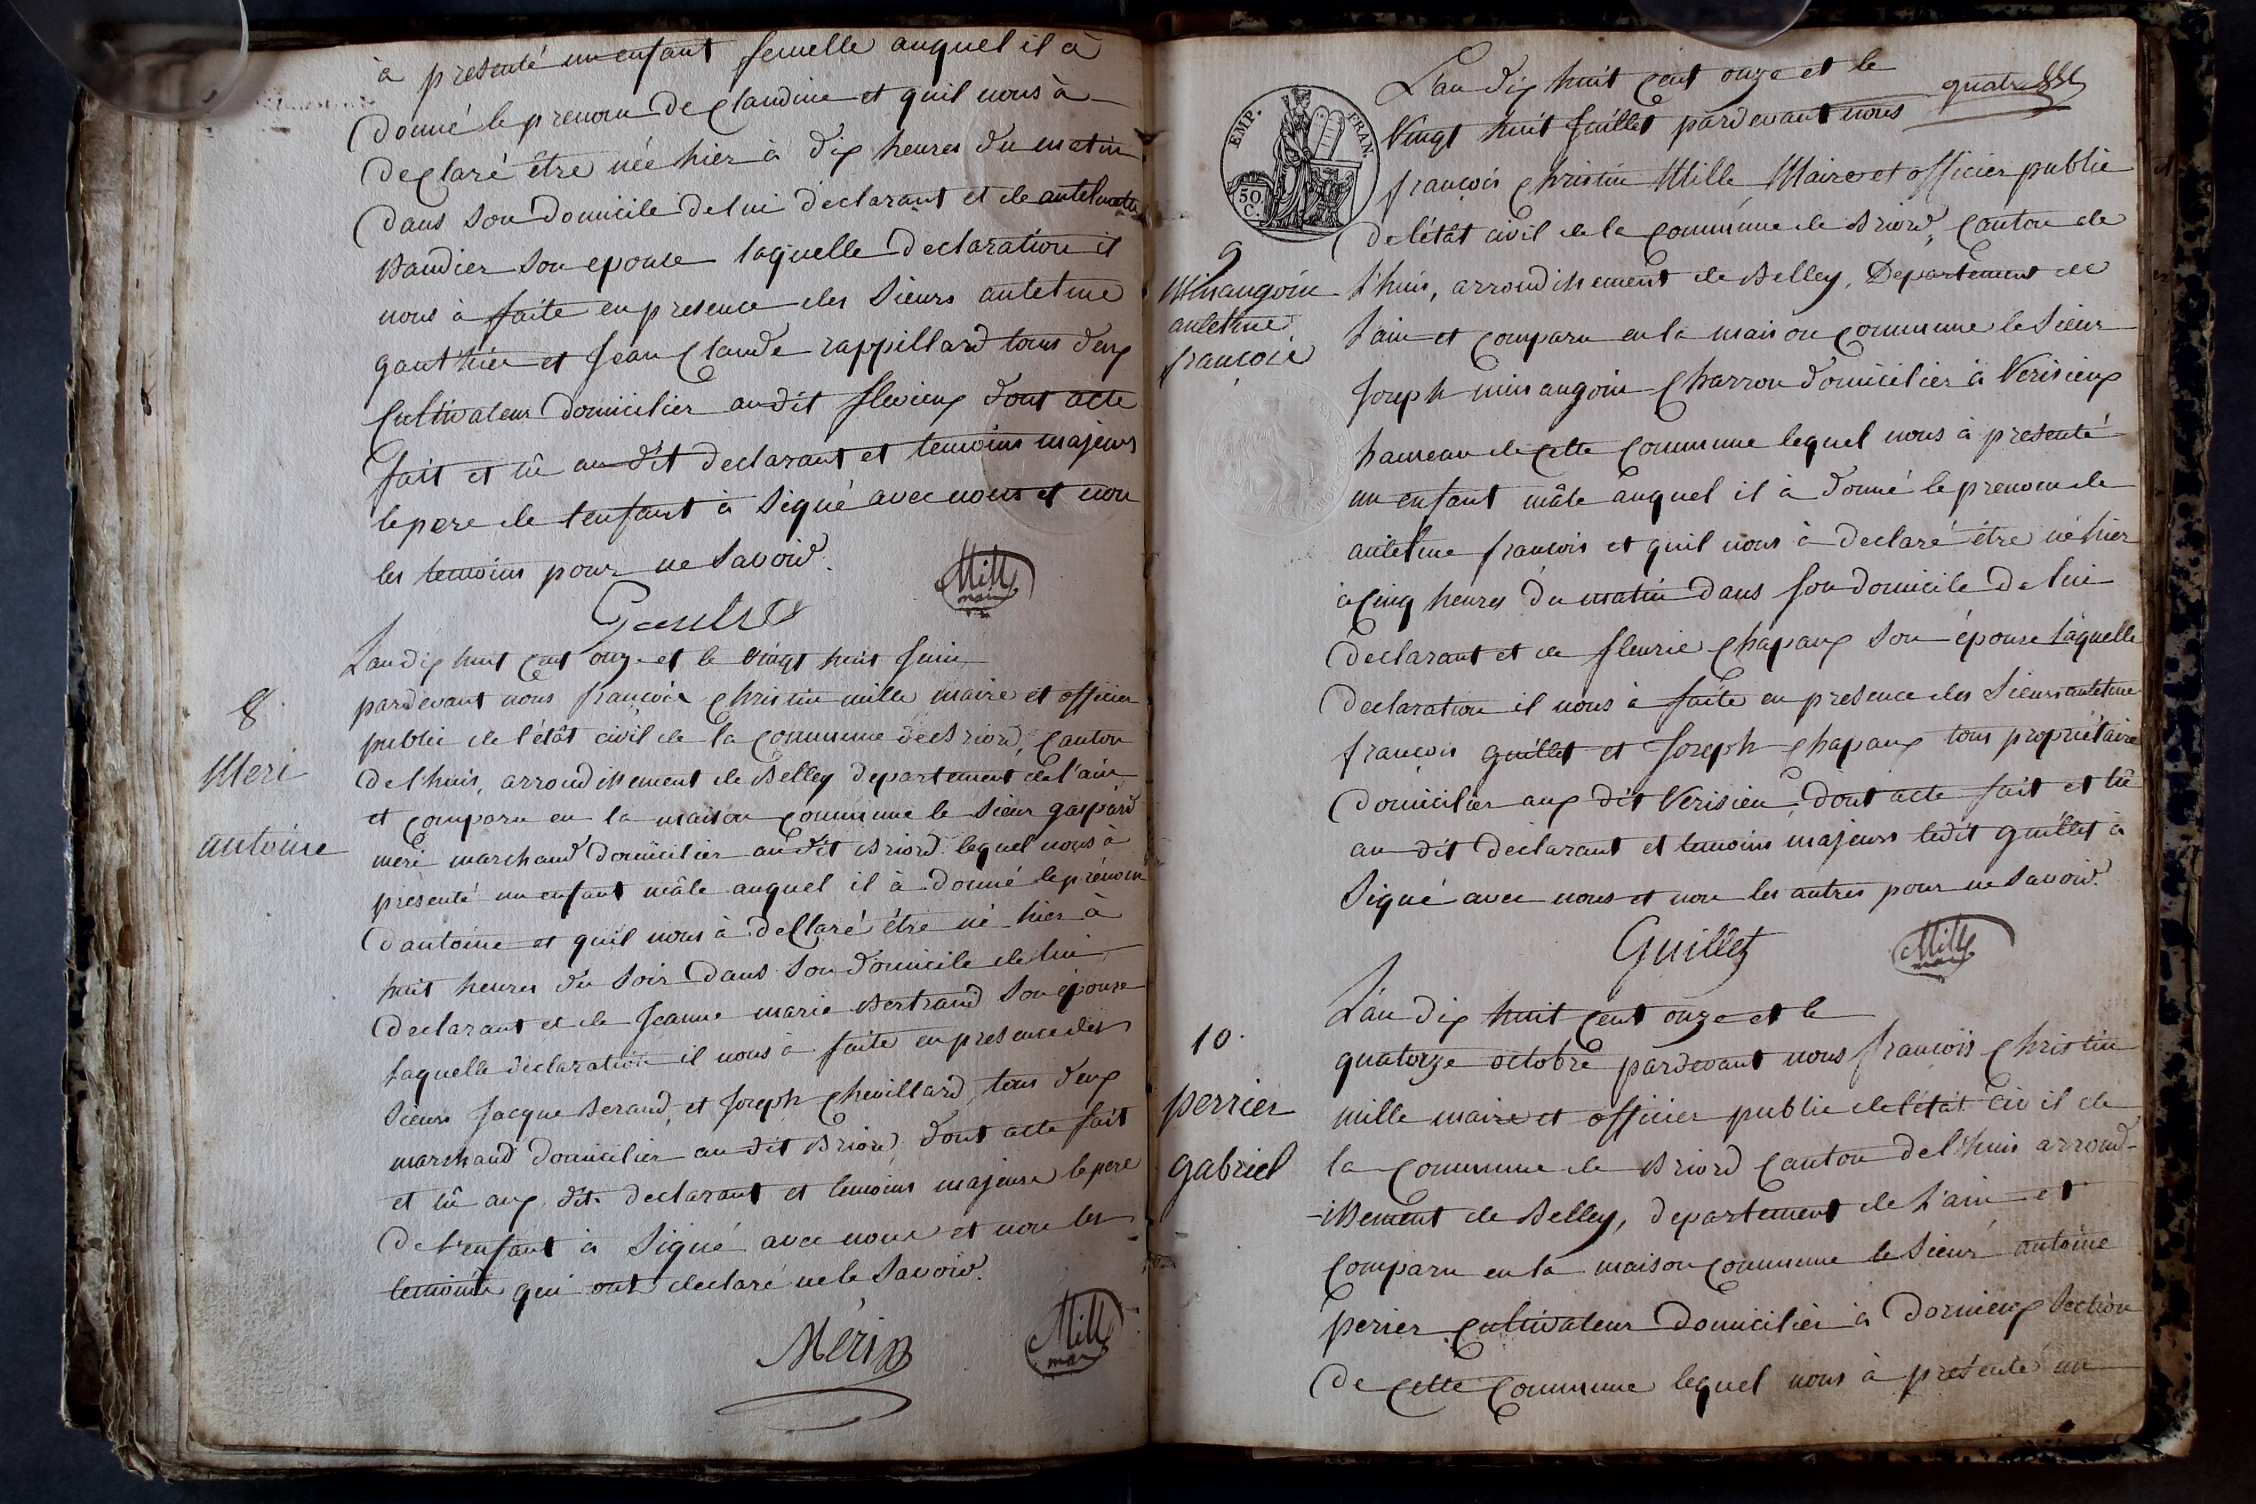 à presenté un enfant femelle auquel il à
donné le prenom de Claudine et quil nous à
declaré être née hier à dix heures du matin
dans son domicile de lui declarant et de antelmette
Baudier son epouse laquelle declaration il
nous à faite en presence des sieurs antelme
gauthier et Jean Claude rappillard tous deux
Cultivateur domicilier audit flevieux dont acte
fait et lû au dit declarant et temoins majeurs
le pere de l'enfant à signé avec nous et non
les temoins pour ne savoir.
Mille
maire
L'an dix huit cent onze et le vingt huit Juin
8
pardevant nous françois Christin mille maire et officier
public de l'état civil de la commune de Briord, Canton
Meri
de lhuis, arrondissement de Belley departement de l'ain
et comparu en la maison commune le sieur gaspard
antoine
meri marchand domicilier au dit Briord lequel nous à
presenté un enfant mâle auquel il à donné le prénom
d'antoine et quil nous à declaré être né hier à
huit heures du soir dans son domicile de lui
declarant et de Jeanne marie Bertrand son épouse
laquelle declaration il nous à faite en presence des
sieurs Jacque Beraud et Joseph Chevillard, tous deux
marchand domicilier au dit Briord dont acte fait
et lû aux dit declarant et temoins majeurs le pere
de l'enfant à signé avec nous et non les
temoins qui ont declaré ne le savoir.
Méri
Mille
maire
EMP. FRAN.
50 C.
L'an dix huit cent onze et le
quatre
vingt huit Juillet pardevant nous
françois Christin Mille Maire et officier public
de l'état civil de la commune de Briord, Canton de
9
Minangoin
lhuis, arrondissement de Belley, Departement de
antelme
l'ain et comparu en la maison commune le sieur
françois
Joseph minangoin Charron domicilier à Verisieux
hameau de cette commune lequel nous à presenté
un enfant mâle auquel il à donné le prenom de
antelme françois et quil nous à declaré être né hier
à Cinq heures du matin dans son domicile de lui
declarant et de fleurie Chapaux son épouse laquelle
declaration il nous à faite en presence des sieurs antelme
françois guillet et Joseph Chapaux tous proprietaire
domicilier aux dit Verisieu, dont acte fait et lû
au dit declarant et temoins majeurs ledit guillet à
signé avec nous et non les autres pour ne savoir.
Guillet
Mille
maire
L'an dix huit cent onze et le
10.
quatorze octobre pardevant nous françois Christin
perrier
mille maire et officier public de l'état civil de
gabriel
la commune de Briord Canton de lhuis arrond-
-issement de Belley, departement de l'ain et
comparu en la maison commune le sieur antoine
perier Cultivateur domicilier à dornieux section
de cette commune lequel nous à presenté un